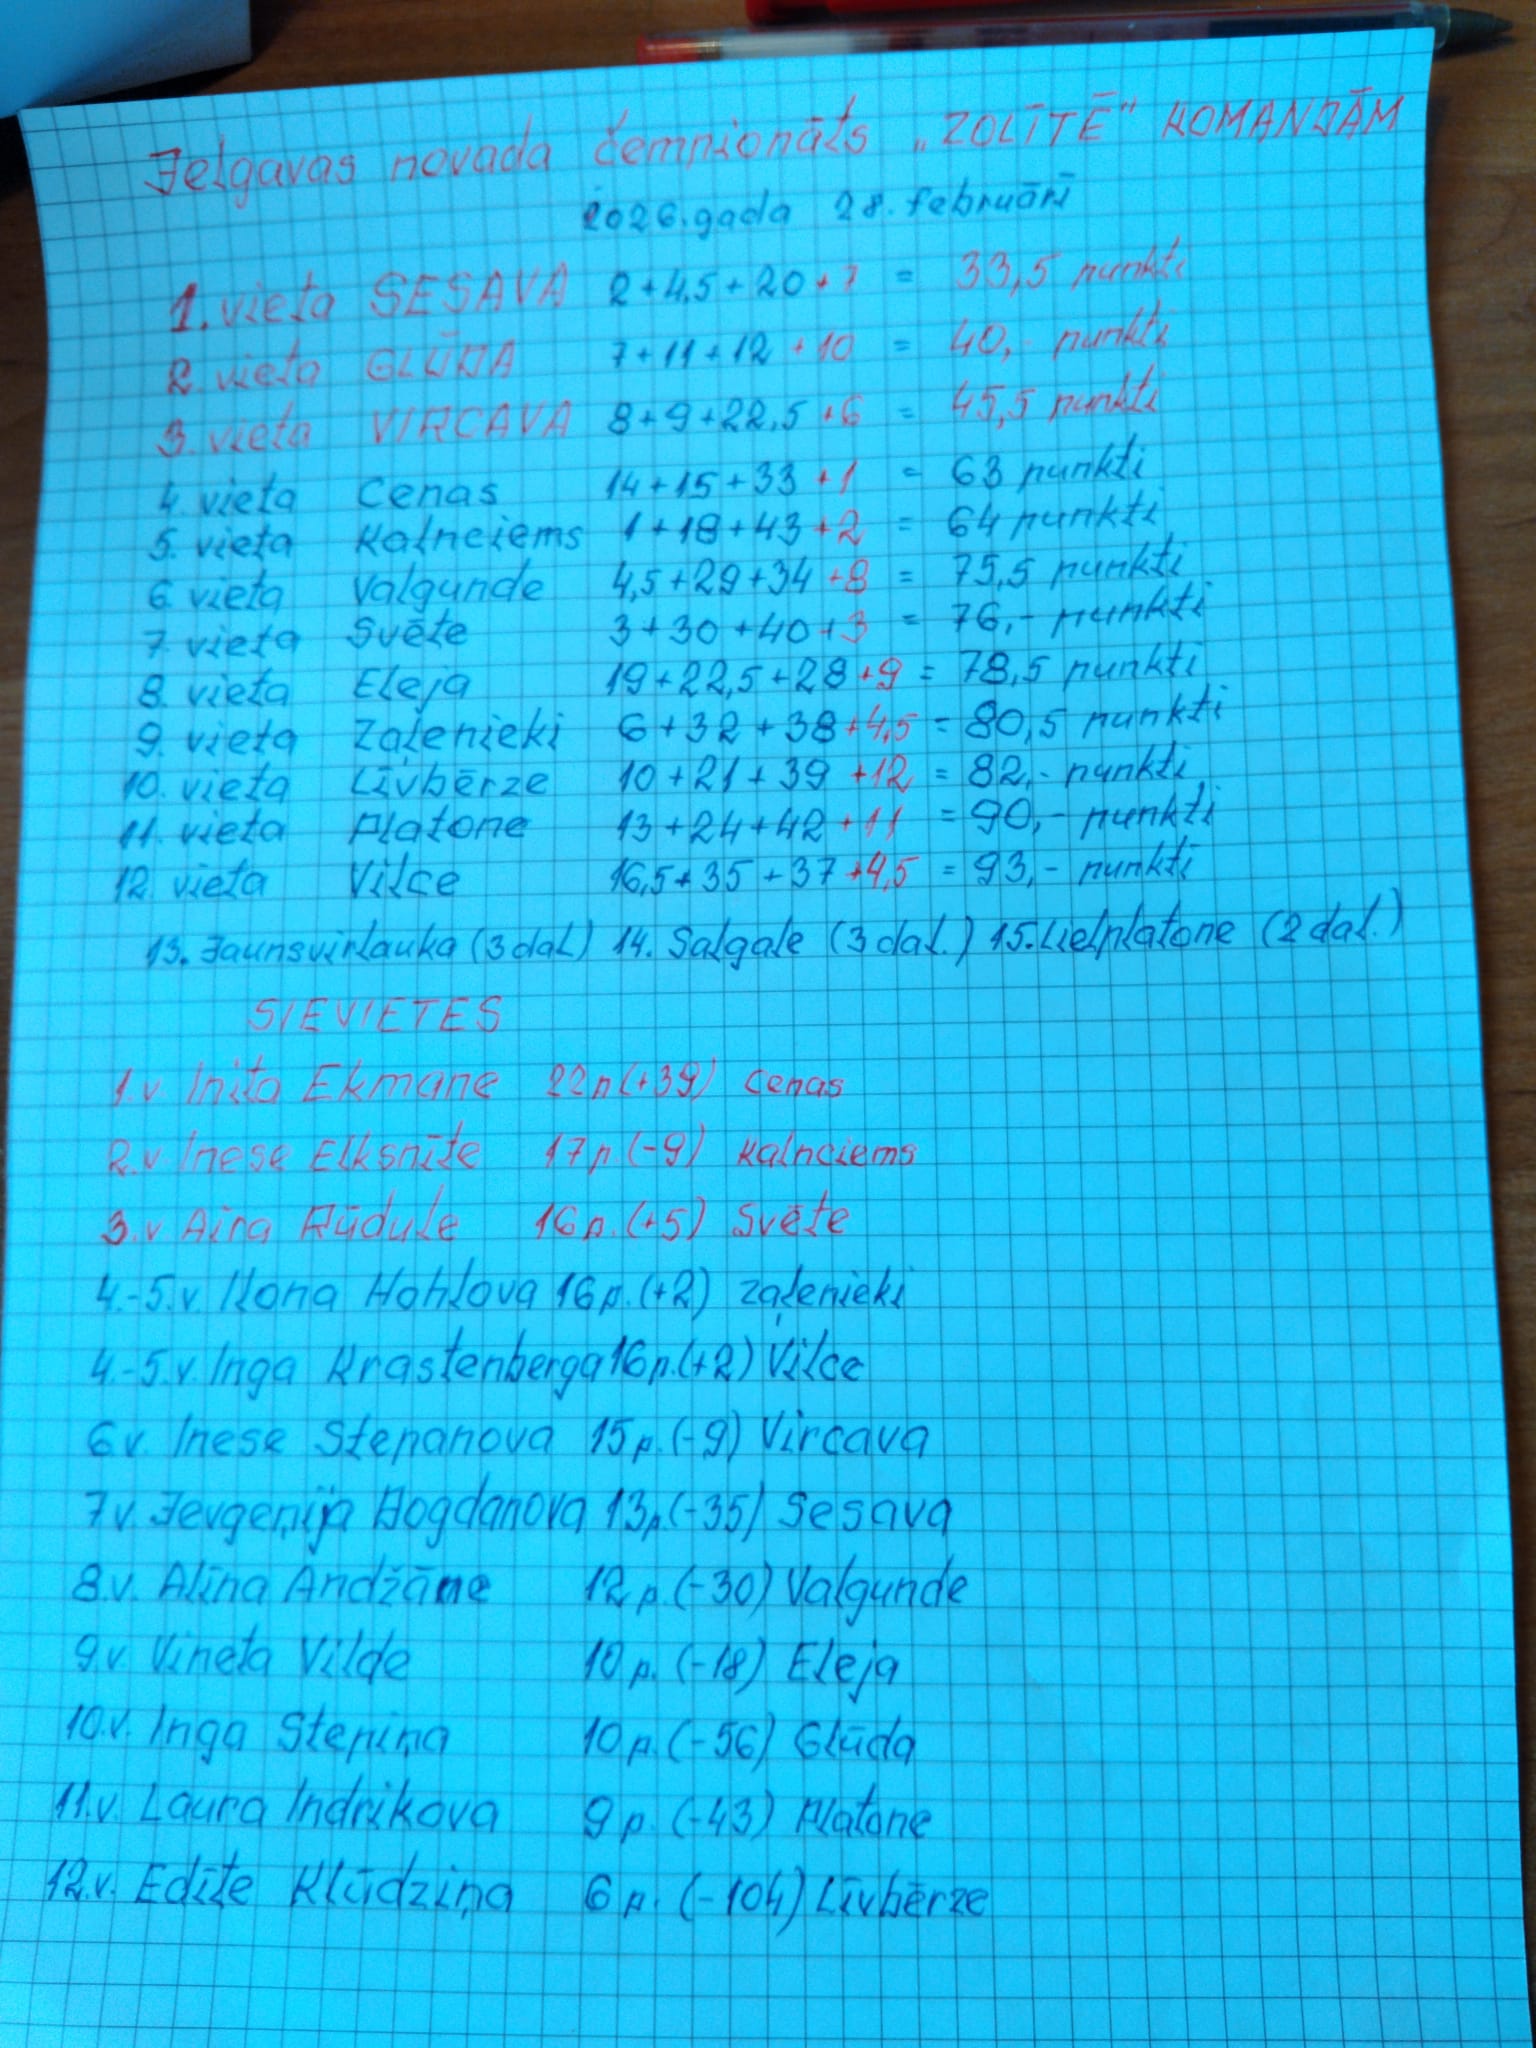 Jelgavas novada čempionāts „ZOLĪTĒ" KOMANDĀM
2026.gada 28. februārī
1. vieta SESAVA 2+4,5+20+7 = 33,5 punkti
2. vieta GLŪDA 7+11+12+10 = 40,- punkti
3. vieta VIRCAVA 8+9+22,5+6 = 45,5 punkti
4. vieta Cenas 14+15+33+1 = 63 punkti
5. vieta Kalnciems 1+18+43+2 = 64 punkti
6. vieta Valgunde 4,5+29+34+8 = 75,5 punkti
7. vieta Svēte 3+30+40+3 = 76,- punkti
8. vieta Eleja 19+22,5+28+9 = 78,5 punkti
9. vieta Zaļenieki 6+32+38+4,5 = 80,5 punkti
10. vieta Līvbērze 10+21+39+12 = 82,- punkti
11. vieta Platone 13+24+42+11 = 90,- punkti
12. vieta Vilce 16,5+35+37+4,5 = 93,- punkti
13. Jaunsvirlauka (3 dal.) 14. Salgale (3 dal.) 15. Lielplatone (2 dal.)
SIEVIETES
1.v. Inita Ekmane 22p(+39) Cenas
2.v. Inese Elksnīte 17p.(-9) Kalnciems
3.v Aira Rūdule 16p.(+5) Svēte
4.-5.v. Ilona Hohlova 16p.(+2) Zaļenieki
4.-5.v. Inga Krastenberga 16p.(+2) Vilce
6v. Inese Stepanova 15p.(-9) Vircava
7v. Jevgeņija Bogdanova 13p.(-35) Sesava
8.v. Alīna Andžāne 12p.(-30) Valgunde
9v. Vineta Vilde 10p.(-18) Eleja
10.v. Inga Stepiņa 10p.(-56) Glūda
11.v. Laura Indrikova 9p.(-43) Platone
12.v. Edīte Klūdziņa 6p.(-104) Līvbērze